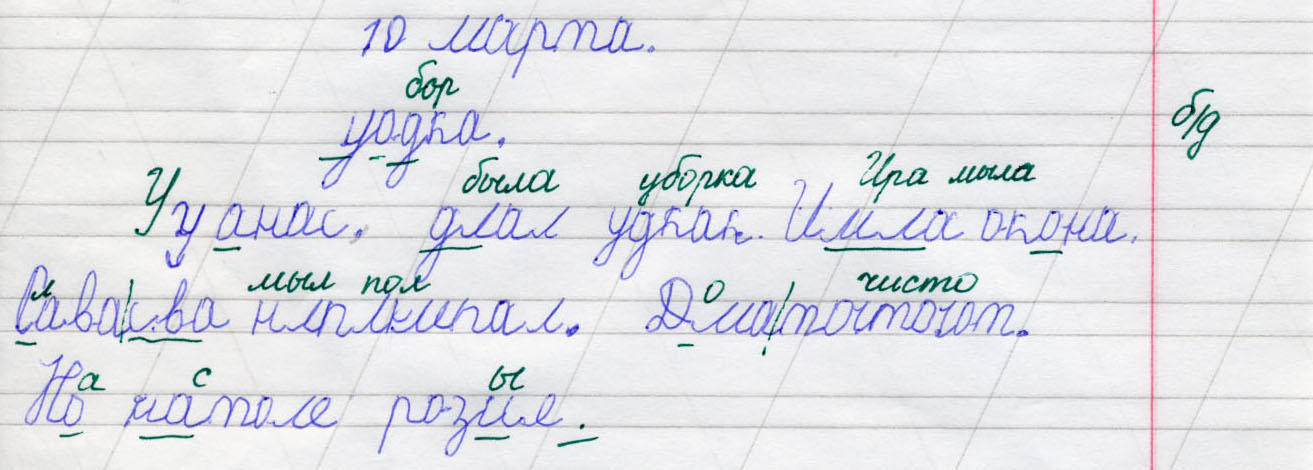 10 марта.
бор
уодка.
б/д
была уборка Ира мыла
У у анас. длал удкак. Имла окона.
л мыл пол о чисто
Савасва нлплмпал. Дматочтоот.
а с ы
На чаполе розиле.